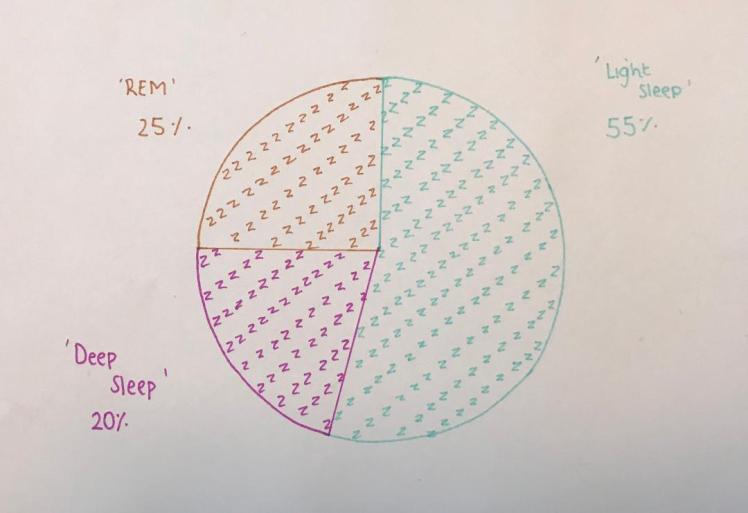 'REM'
25%
'Light
Sleep'
55%
'Deep
Sleep'
20%